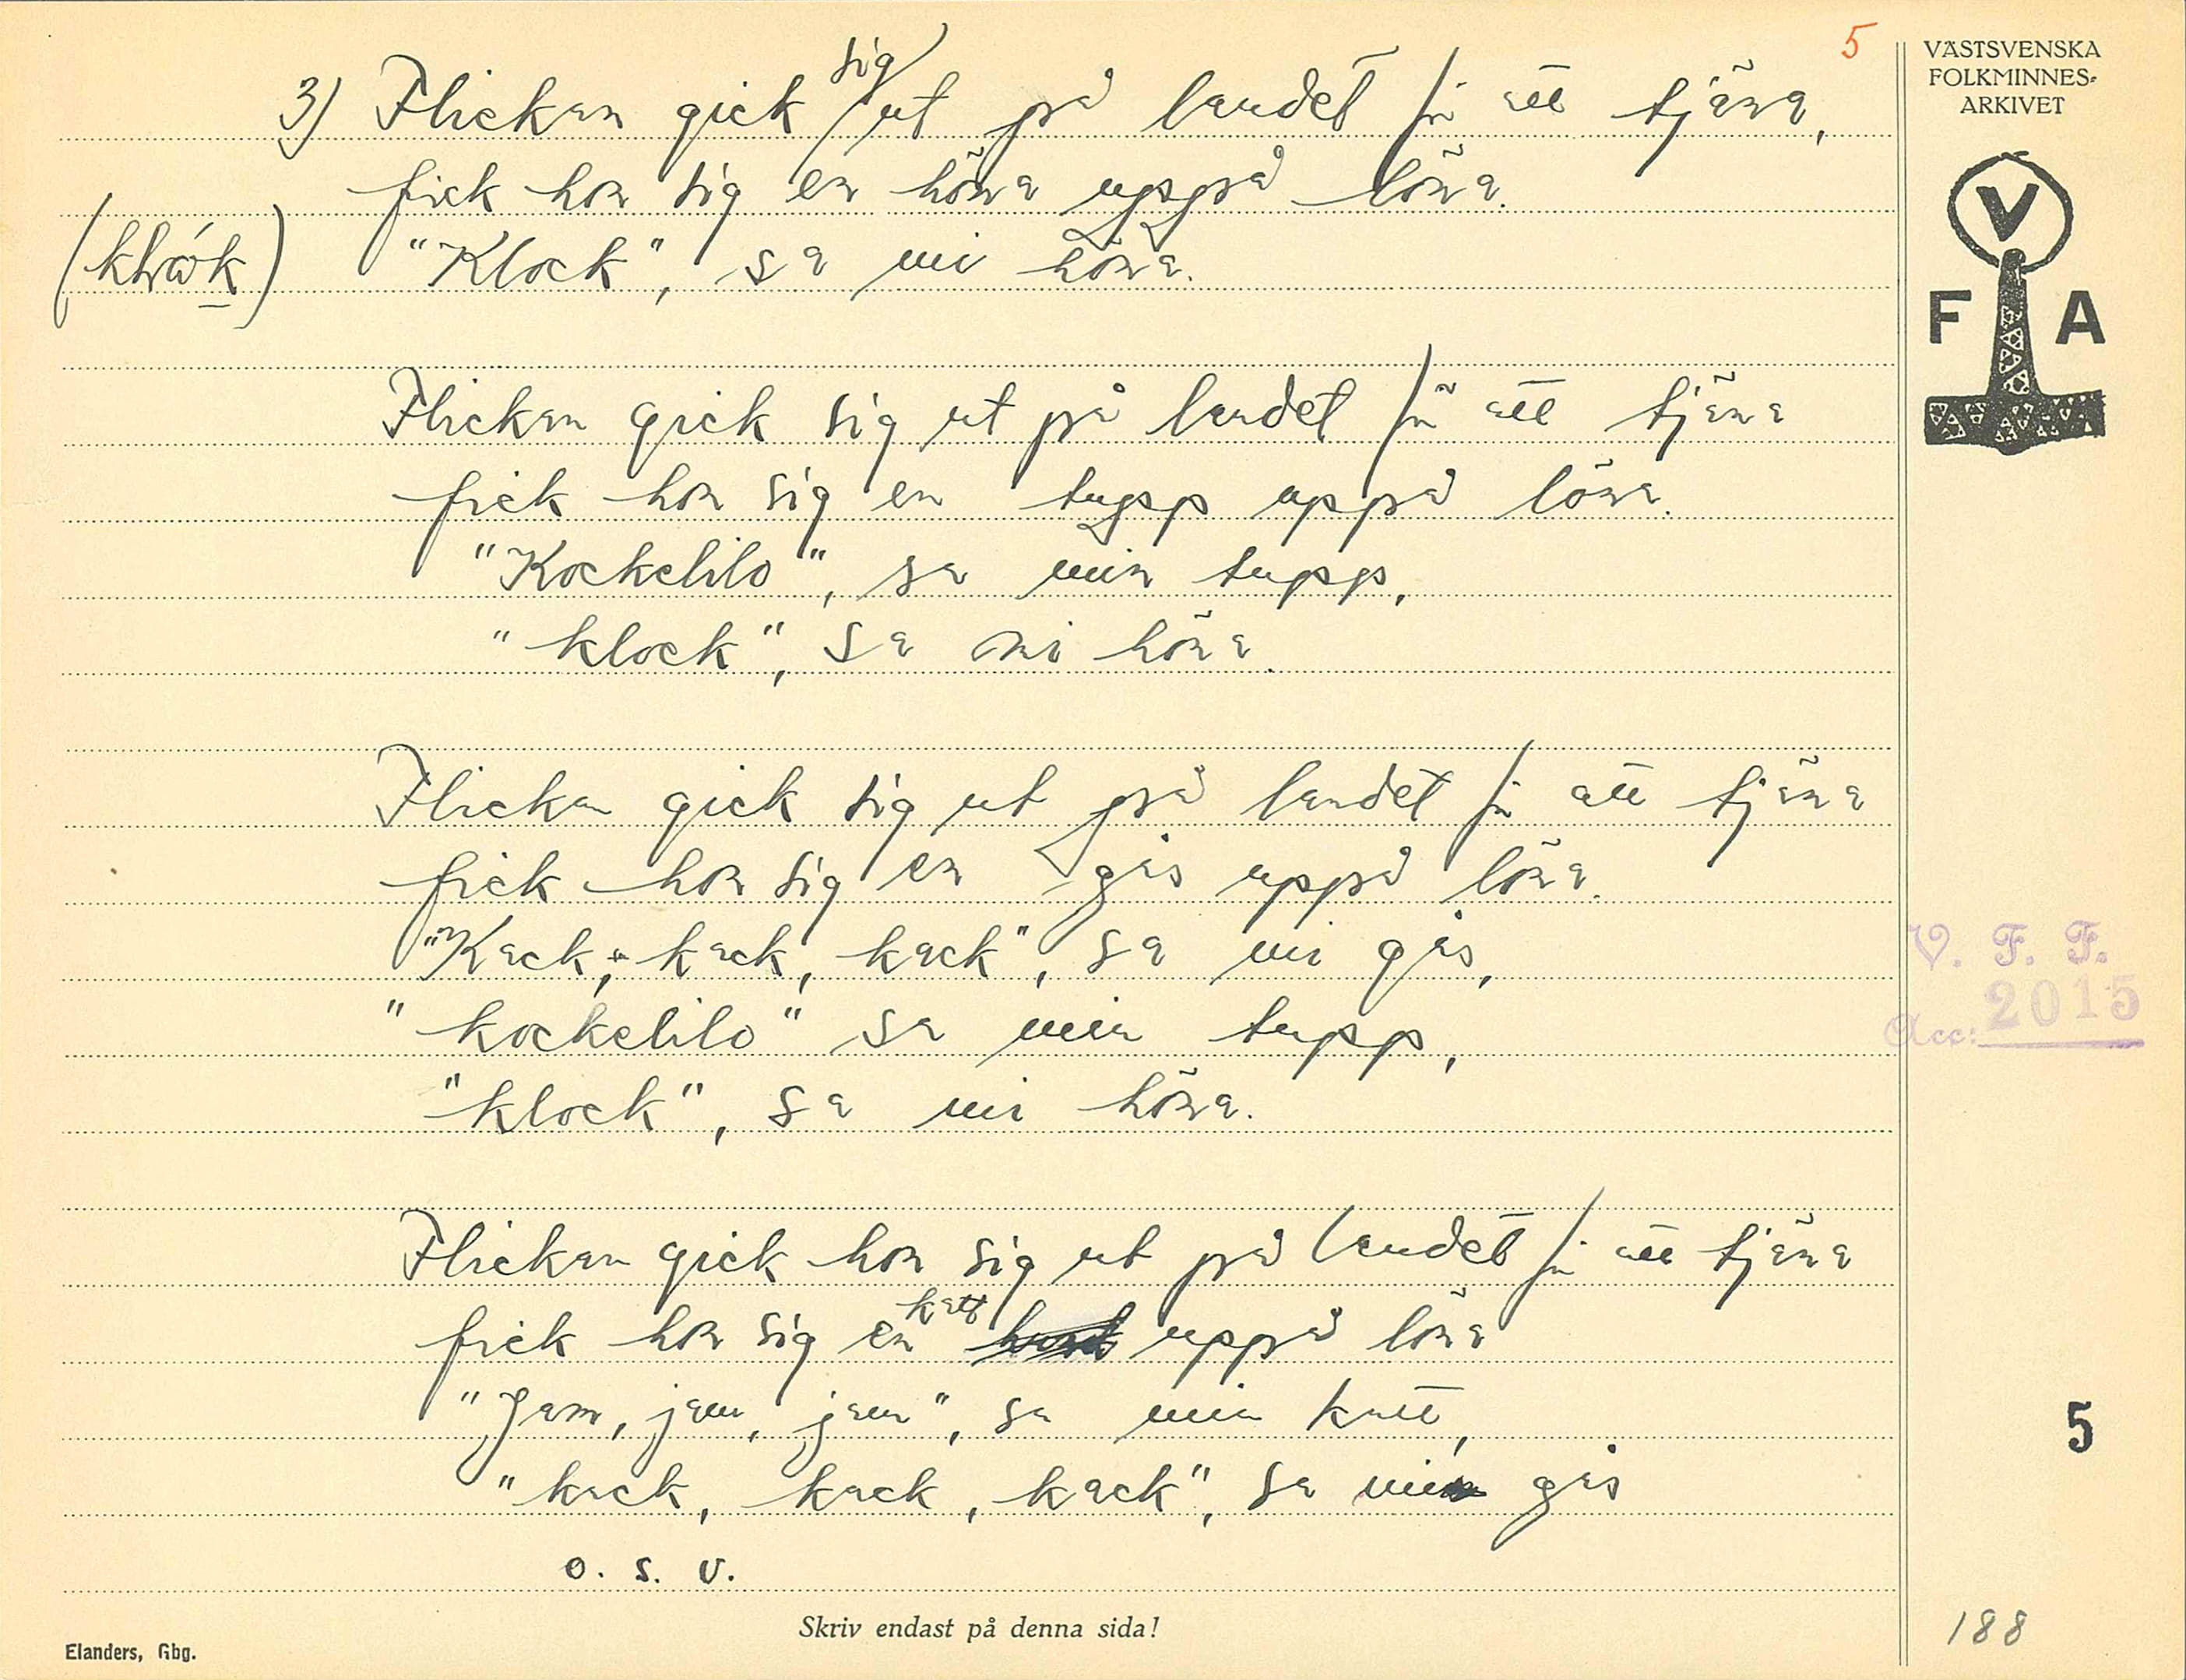 5
3) Flickan gick sig ut på landet för att tjäna,
fick hon sig en höna uppå löna.
"Klock", sa mi höna.
Flickan gick sig ut på landet för att tjäna
fick hon sig en tupp uppå löna.
"Kockelilo", sa min tupp,
"klock", sa mi höna.
Flickan gick sig ut på landet för att tjäna
fick hon sig en gås uppå löna.
"Kack, kack, kack", sa mi gås,
"kockelilo" sa min tupp,
"klock", sa mi höna.
Flickan gick hon sig ut på landet för att tjäna
fick hon sig en katt uppå löna
"Jam, jam, jam", sa min katt,
"kack, kack, kack", sa mi gås
o. s. v.
Skriv endast på denna sida!
Elanders, Gbg.
VÄSTSVENSKA
FOLKMINNES-
ARKIVET
V
F A
V. F. F.
Acc: 2015
5
188